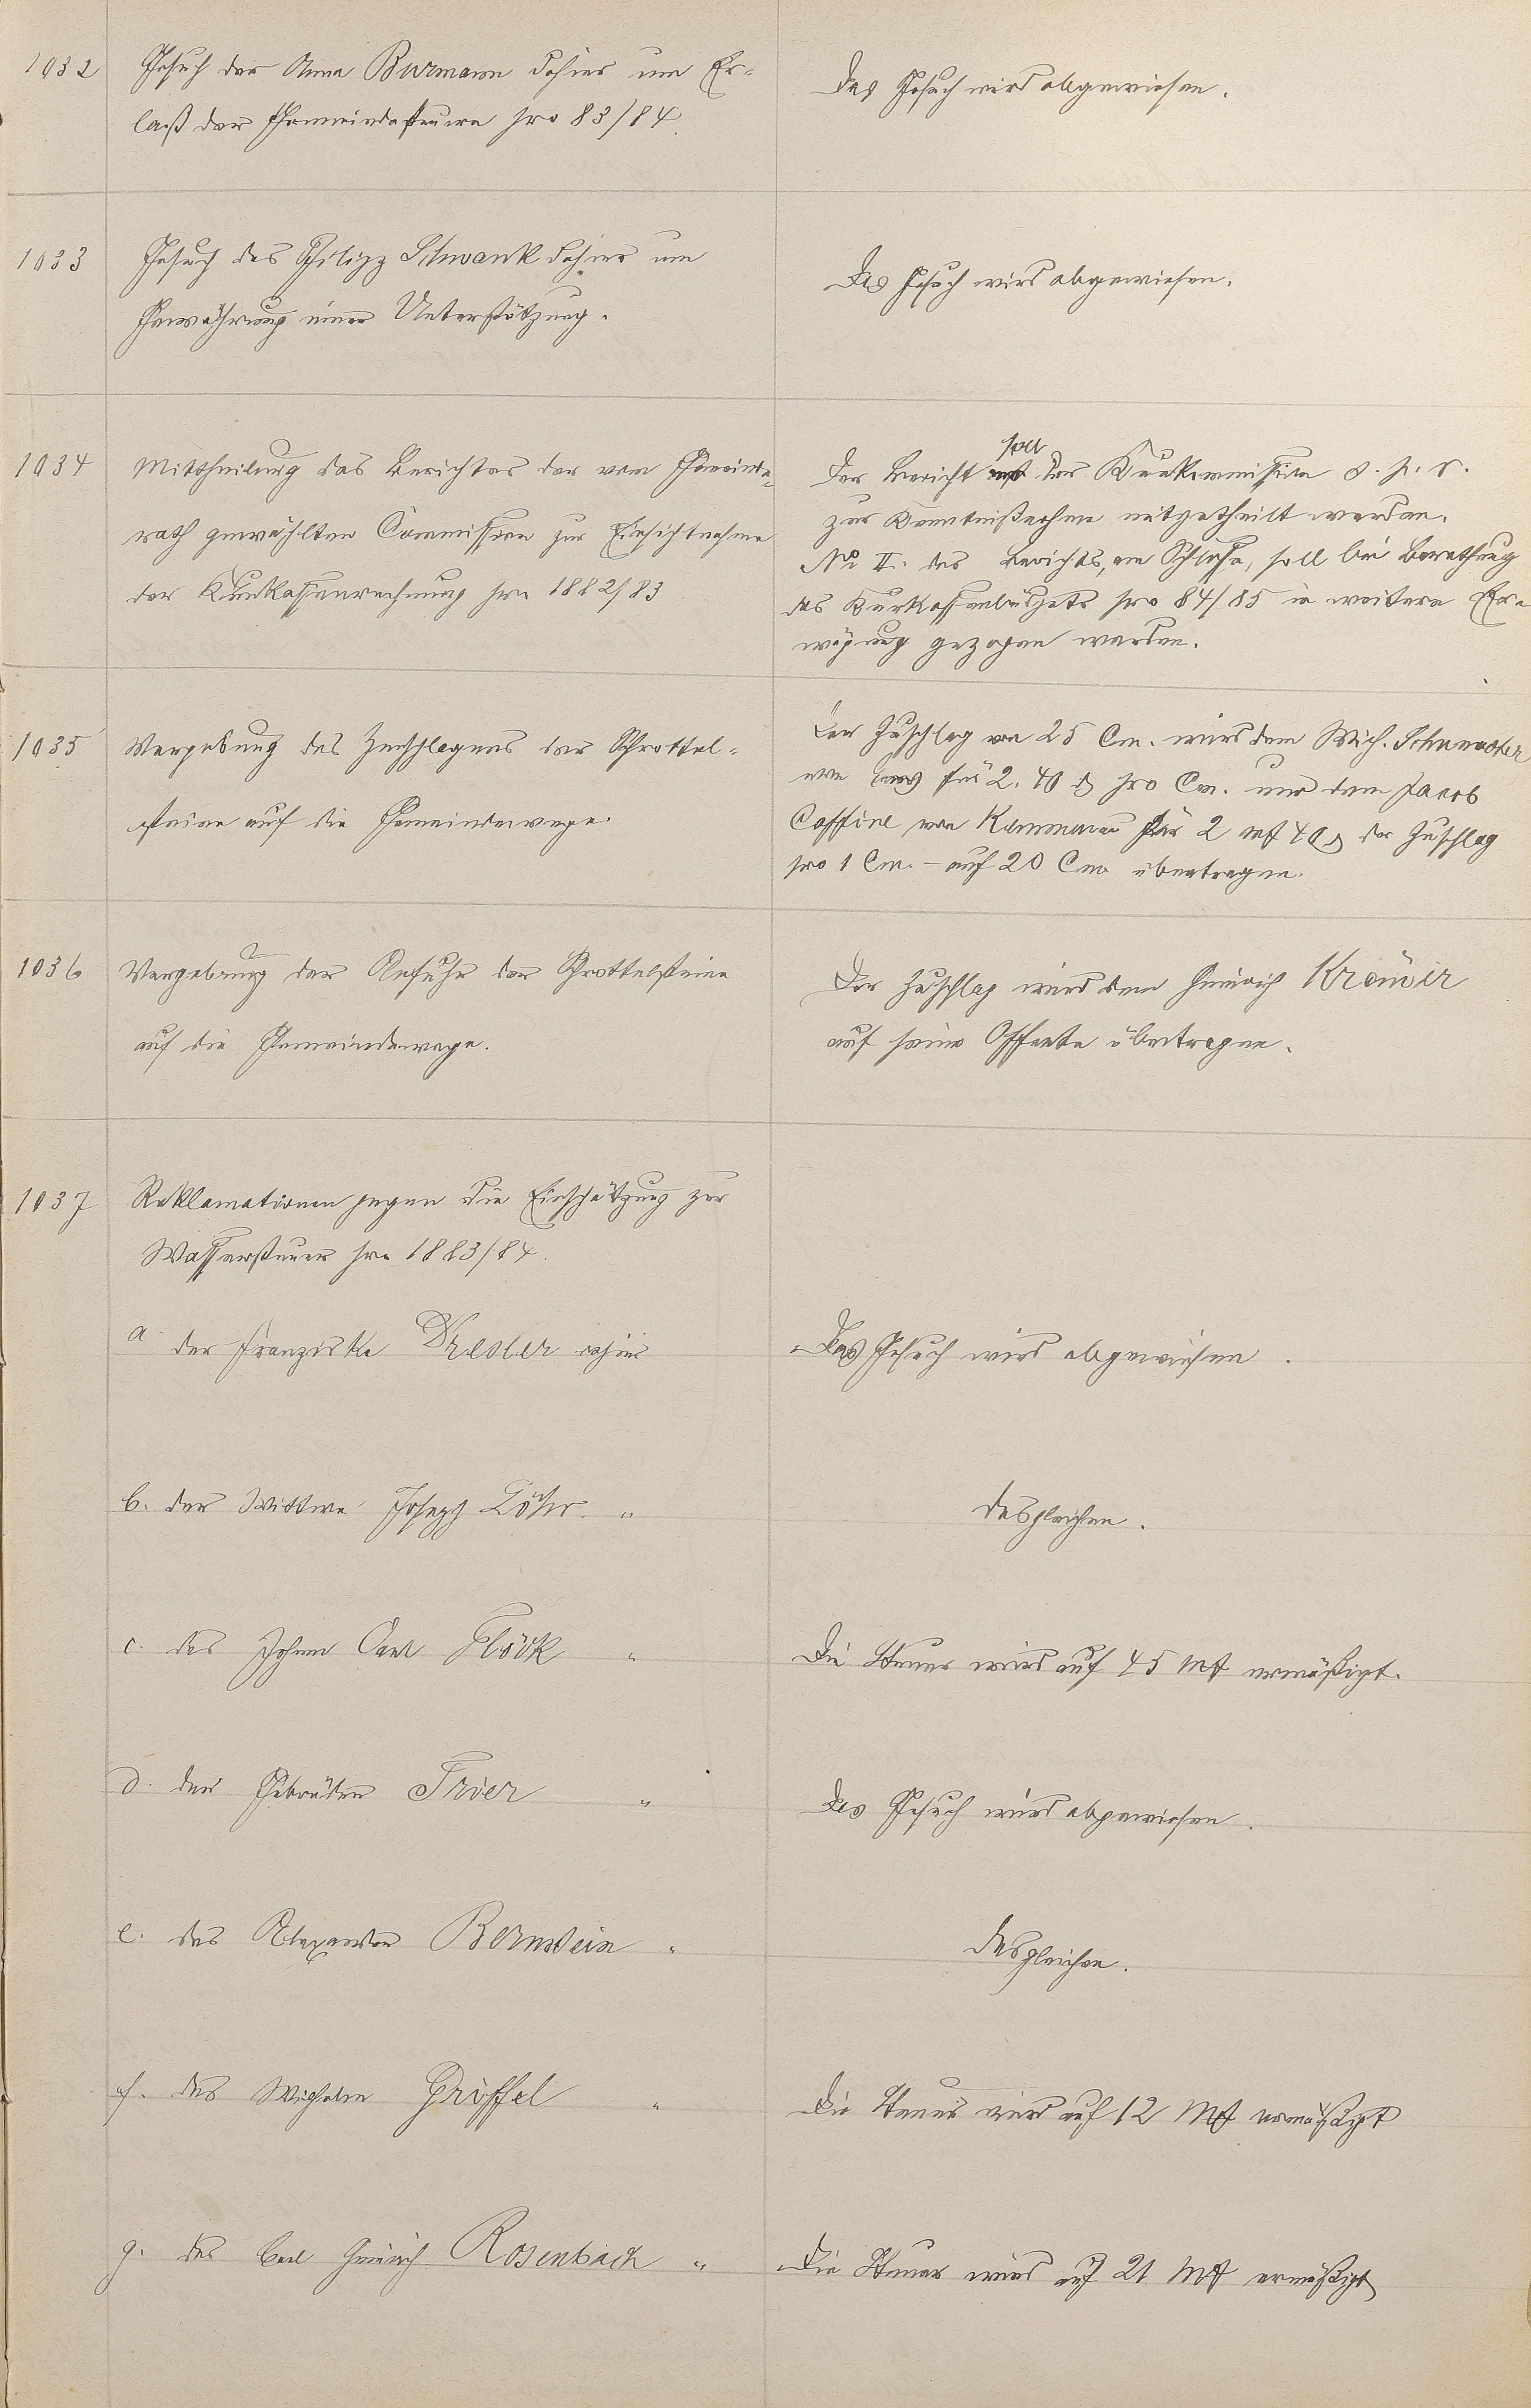 1032
Gesuch der Anna Burmann dahier um Er-
laß der Gemeindesteuern pro 83/84.
Das Gesuch wird abgewiesen.
1033
Gesuch des Philipp Schwank dahier um
Gewährung einer Unterstützung.
Das Gesuch wird abgewiesen.
1034
Mittheilung des Berichtes der vom Gemeinde-
rath gewählten Commission zur Einsichtnahme
der Kurkassenrechnung pro 1882/83
soll
Der Bericht der Kurkommission s. p. r.
zur Kenntnißnahme mitgetheilt werden.
No II. des Berichts, am Schlusse, soll bei Berathung
des Kurkassenbudgets pro 84/85 in weitere Er-
wägung gezogen werden.
1035
Vergebung des Zerschlagens der Schrottel-
steine auf die Gemeindewege.
Der Zuschlag von 25 Cm. wird dem Mich. Schumacher
von Ems für 2.40 ₰ pro Cm. und dem Jacob
Caffine von Kemmenau für 2 M 40 ₰ der Zuschlag
pro 1 Cm. - auf 20 Cm übertragen.
1036
Vergebung der Anfuhr der Schrottelsteine
auf die Gemeindewege.
Der Zuschlag wird dem Heinrich Krämer
auf seine Offerte übertragen.
1037
Reklamationen gegen die Einschätzung zur
Wassersteuer pro 1883/84.
a. der Franziska Dresler dahier
Das Gesuch wird abgewiesen.
b. der Wittwe Joseph Löhr "
desgleichen.
c. des Johann Carl Flöck "
Die Steuer wird auf 45 M ermäßigt.
d. der Gebrüder Trier "
Das Gesuch wird abgewiesen.
e. des Alexander Bernstein "
desgleichen.
f. des Wilhelm Gröffel "
Die Steuer wird auf 12 M ermäßigt
g. des Carl Heinrich Rosenbach "
Die Steuer wird auf 21 M ermäßigt